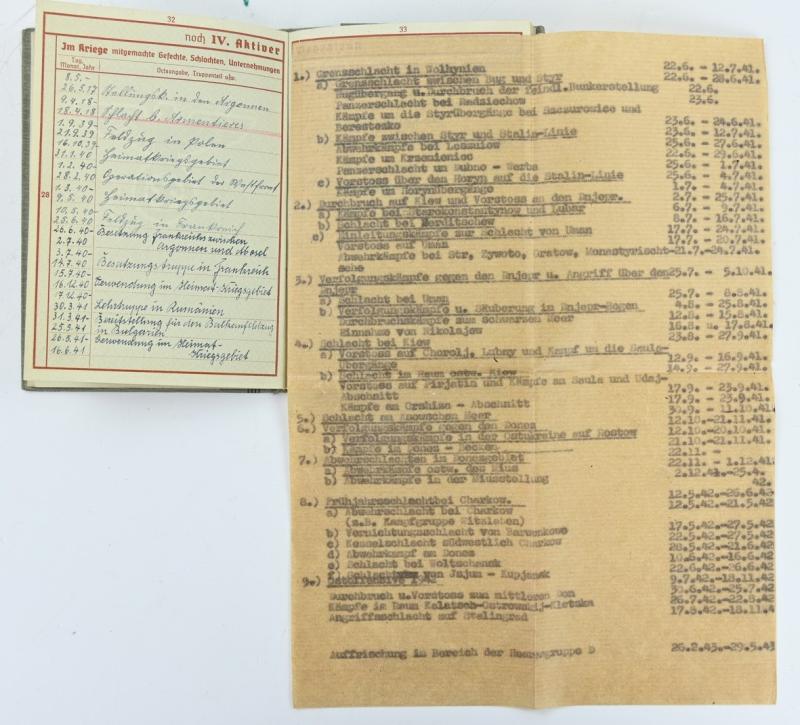 32
noch IV. Aktiver
Im Kriege mitgemachte Gefechte, Schlachten, Unternehmungen
Tag, Monat, Jahr
Ortsangabe, Truppenteil usw.
28
8.5.-
26.5.17 Stellungsk. in den Argonnen
9.4.18-
18.4.18 Schlacht b. Armentieres
1.9.39-
21.9.39 Feldzug in Polen
16.10.39-
31.1.40 Heimatkriegsgebiet
1.2.40-
28.2.40 Operationsgebiet der Westfront
1.3.40-
9.5.40 Heimatkriegsgebiet
10.5.40-
25.6.40 Feldzug in Frankreich
26.6.40- Besetzung Frankreichs zwischen
2.7.40 Argonnen und Mosel
3.7.40-
14.7.40 Besatzungstruppe in Frankreich
15.7.40-
16.12.40 Verwendung im Heimat-Kriegsgebiet
17.12.40-
30.3.41 Lehrtruppe in Rumänien
31.3.41- Bereitstellung für den Balkanfeldzug
25.5.41 in Bulgarien
26.5.41- Verwendung im Heimat-
16.6.41 Kriegsgebiet
33
1.) Grenzschlacht in Wolhynien 22.6. - 12.7.41.
a) Grenzschlacht zwischen Bug und Styr 22.6. - 28.6.41.
Bugübergang u.Durchbruch der feindl.Bunkerstellung 22.6.
Panzerschlacht bei Radziechow 23.6.
Kämpfe um die Styrübergänge bei Szczurowice und
Beresteczko 23.6. - 24.6.41.
b) Kämpfe zwischen Styr und Stalin-Linie 23.6. - 12.7.41.
Abwehrkämpfe bei Leszniow 25.6. - 27.6.41.
Kämpfe um Krzemieniec 22.6. - 29.6.41.
Panzerschlacht um Dubno - Werba 25.6. - 1.7.41.
c) Vorstoss über den Horyn auf die Stalin-Linie 25.6. - 4.7.41.
Kämpfe um Horynübergänge 1.7. - 4.7.41.
2.) Durchbruch auf Kiew und Vorstoss an den Dnjepr. 2.7. - 25.7.41.
a) Kämpfe bei Starokonstantynow und Lubar 6.7. - 9.7.41.
b) Schlacht bei Berditschew 8.7. - 16.7.41.
c) Einleitungskämpfe zur Schlacht von Uman 17.7. - 24.7.41.
Vorstoss auf Uman 17.7. - 20.7.41.
Abwehrkämpfe bei Str. Zywoto, Oratow, Monastyrischt-21.7.-24.7.41.
sche
3.) Verfolgungskämpfe gegen den Dnjepr u. Angriff über den 25.7. - 5.10.41.
Dnjepr
a) Schlacht bei Uman 25.7. - 8.8.41.
b) Verfolgungskämpfe u. Säuberung in Dnjepr-Bogen 4.8. - 25.8.41.
Durchbruchskämpfe zum schwarzen Meer 12.8. - 15.8.41.
Einnahme von Nikolajew 16.8. u. 17.8.41.
23.8. - 27.9.41.
4.) Schlacht bei Kiew
a) Vorstoss auf Chorolj, Lubny und Kampf um die Ssula-
Übergänge 12.9. - 16.9.41.
b) Schlacht im Raum ostw. Kiew 14.9. - 27.9.41.
Vorstoss auf Pirjatin und Kämpfe am Ssula und Udaj-
Abschnitt 17.9. - 23.9.41.
Kämpfe am Orshiza - Abschnitt 17.9. - 23.9.41.
5.) Schlacht am Asowschen Meer 30.9. - 11.10.41.
6.) Verfolgungskämpfe gegen den Donez 12.10.-21.11.41.
a) Verfolgungskämpfe in der Ostukraine auf Rostow 12.10.-20.10.41.
b) Kämpfe im Donez - Becken 21.10.-21.11.41.
7.) Abwehrschlachten im Donezgebiet 22.11. -
a) Abwehrkämpfe ostw. des Mius 22.11. - 1.12.41.
b) Abwehrkämpfe in der Miusstellung 2.12.41.-25.4.
42.
8.) Frühjahrsschlacht bei Charkow. 12.5.42.-26.6.42
a) Abwehrschlacht bei Charkow 12.5.42.-21.5.42
(z.B. Kampfgruppe Witzleben)
b) Vernichtungsschlacht von Barwenkowo 17.5.42.-27.5.42
c) Kesselschlacht südwestlich Charkow 22.5.42.-27.5.42
d) Abwehrkampf am Donez 28.5.42.-21.6.42
e) Schlacht bei Woltschansk 10.6.42.-16.6.42
f) Schlacht von Isjum - Kupjansk 22.6.42.-26.6.42
9.) Ostoffensive 1942 9.7.42.-18.11.42
Durchbruch u.Vorstoss zum mittleren Don 30.6.42.-25.7.42
Kämpfe im Raum Kalatsch-Ostrowskij-Kletska 26.7.42.-22.8.42
Angriffsschlacht auf Stalingrad 17.8.42.-18.11.4
Auffrischung im Bereich der Heeresgruppe D 26.2.43.-29.5.43